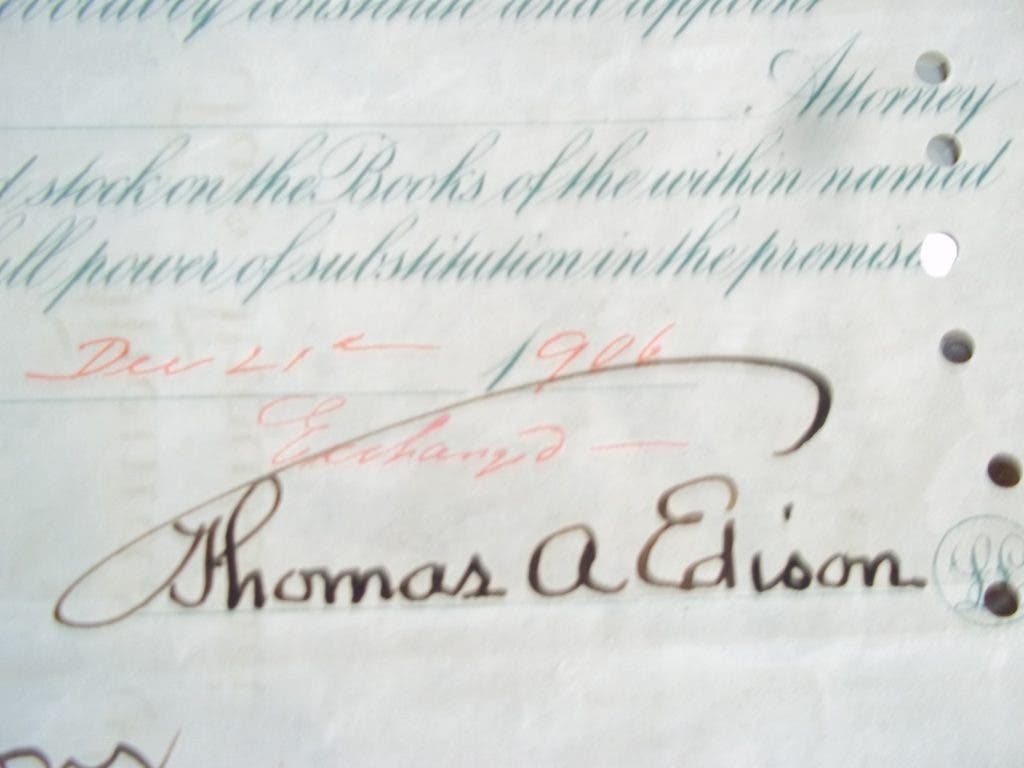 constitute and appoint
Attorney
stock on the Books of the within named
power of substitution in the premises
Dec 21st 1906
Exchanged —
Thomas A Edison
L S